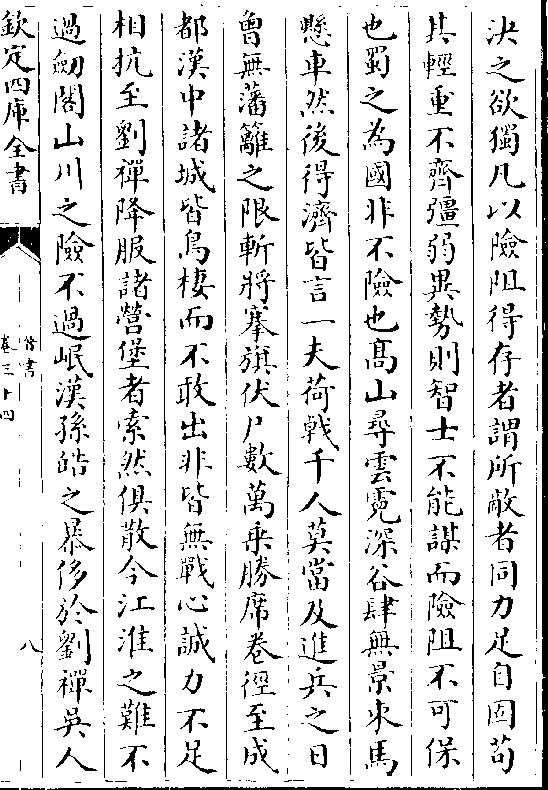 決之欲獨凡以險阻得存者謂所敵者同力足自固苟
其輕重不齊彊弱異勢則智士不能謀而險阻不可保
也蜀之為國非不險也髙山尋雲霓深谷肆無景束馬
懸車然後得濟皆言一夫荷㦸千人莫當及進兵之日
曾無藩籬之限斬將搴旗伏尸數萬乗勝席卷徑至成
都漢中諸城皆鳥棲而不敢出非皆無戰心誠力不足
相抗至劉禪降服諸營堡者索然俱散今江淮之難不
過劒閣山川之險不過岷漢孫皓之暴侈於劉禪吳人
欽定四庫全書
晉書
卷三十四
八